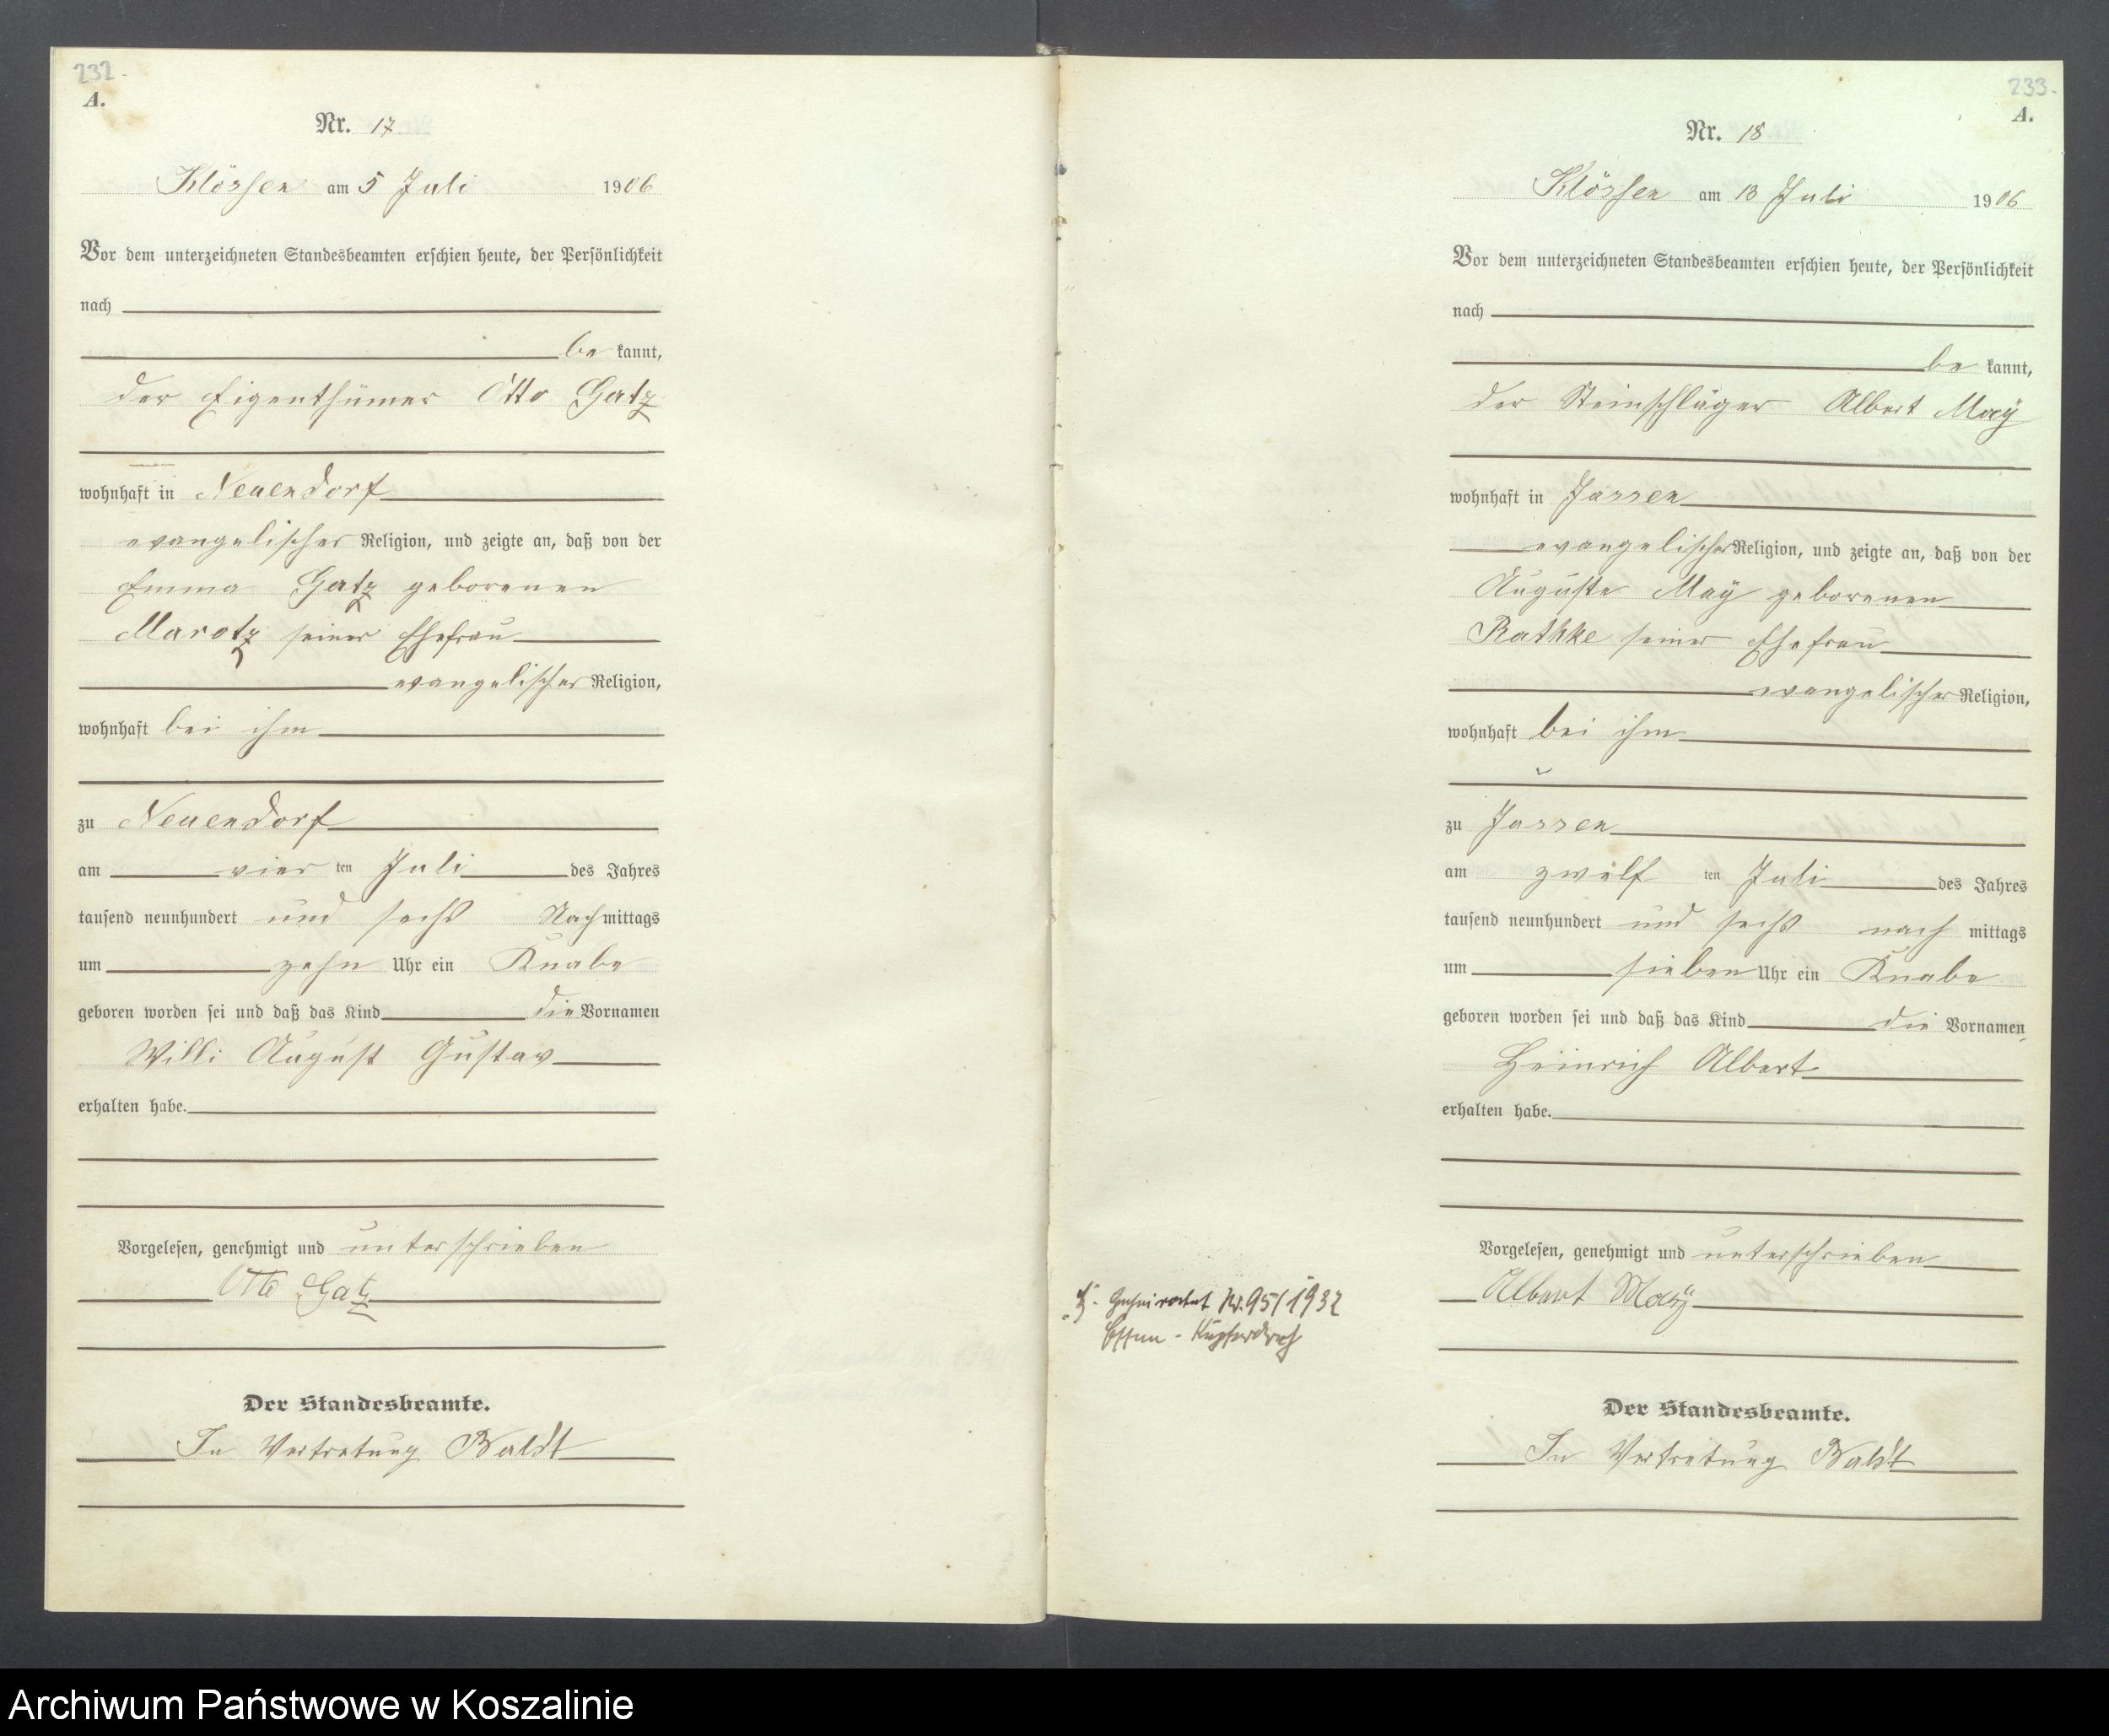 232.
A.
Nr. 17
Klössen am 5 Juli 1906
Vor dem unterzeichneten Standesbeamten erschien heute, der Persönlichkeit
nach
be kannt,
der Eigenthümer Otto Gatz
wohnhaft in Neuendorf
evangelischer Religion, und zeigte an, daß von der
Emma Gatz geborenen
Marotz seiner Ehefrau
evangelischer Religion,
wohnhaft bei ihm
zu Neuendorf
am vier ten Juli des Jahres
tausend neunhundert und sechs Nachmittags
um zehn Uhr ein Knabe
geboren worden sei und daß das Kind die Vornamen
Willi August Gustav
erhalten habe.
Vorgelesen, genehmigt und unterschrieben
Otto Gatz
Der Standesbeamte.
In Vertretung Baldt
233.
A.
Nr. 18
Klössen am 13 Juli 1906
Vor dem unterzeichneten Standesbeamten erschien heute, der Persönlichkeit
nach
be kannt,
der Steinschläger Albert Maÿ
wohnhaft in Jassen
evangelischer Religion, und zeigte an, daß von der
Auguste Maÿ geborenen
Rathke seiner Ehefrau
evangelischer Religion,
wohnhaft bei ihm
zu Jassen
am zwölf ten Juli des Jahres
tausend neunhundert und sechs nach mittags
um sieben Uhr ein Knabe
geboren worden sei und daß das Kind die Vornamen,
Heinrich Albert
erhalten habe.
Vorgelesen, genehmigt und unterschrieben
Albert Maÿ
Geheiratet Nr. 95/1932
Essen - Kupferdreh
Der Standesbeamte.
In Vertretung Baldt
Archiwum Państwowe w Koszalinie